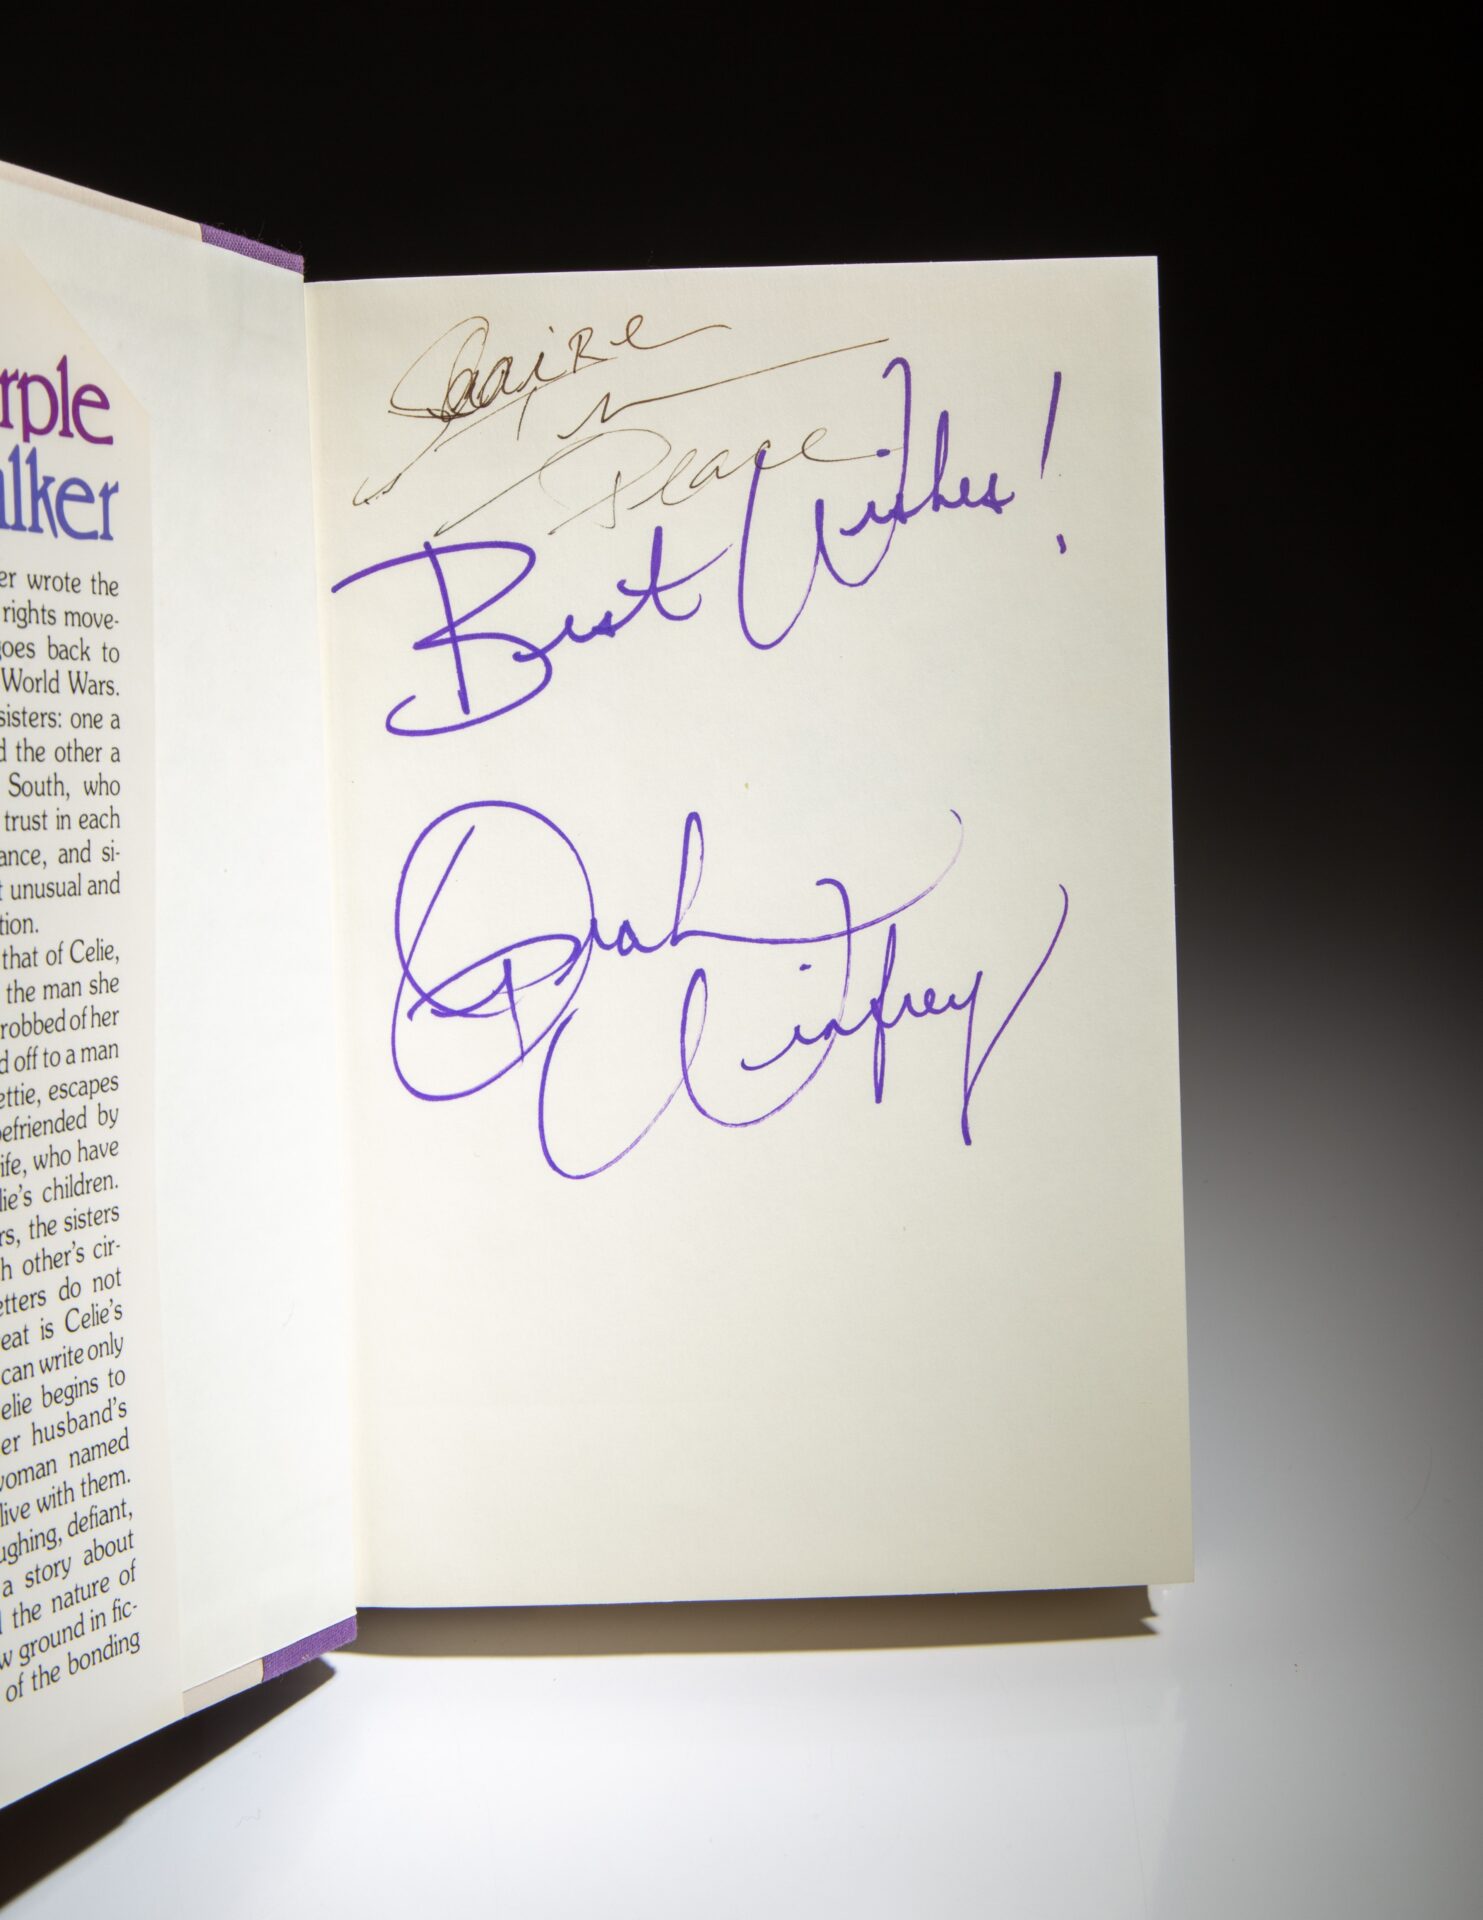 rple
lker
er wrote the
rights move-
goes back to
World Wars.
sisters: one a
d the other a
South, who
trust in each
ance, and si-
t unusual and
tion.
that of Celie,
the man she
robbed of her
d off to a man
ettie, escapes
befriended by
ife, who have
lie's children.
rs, the sisters
h other's cir-
etters do not
eat is Celie's
can write only
elie begins to
er husband's
woman named
live with them.
ughing, defiant,
a story about
the nature of
w ground in fic-
of the bonding
In
Peace
Best Wishes!
Oprah
Winfrey